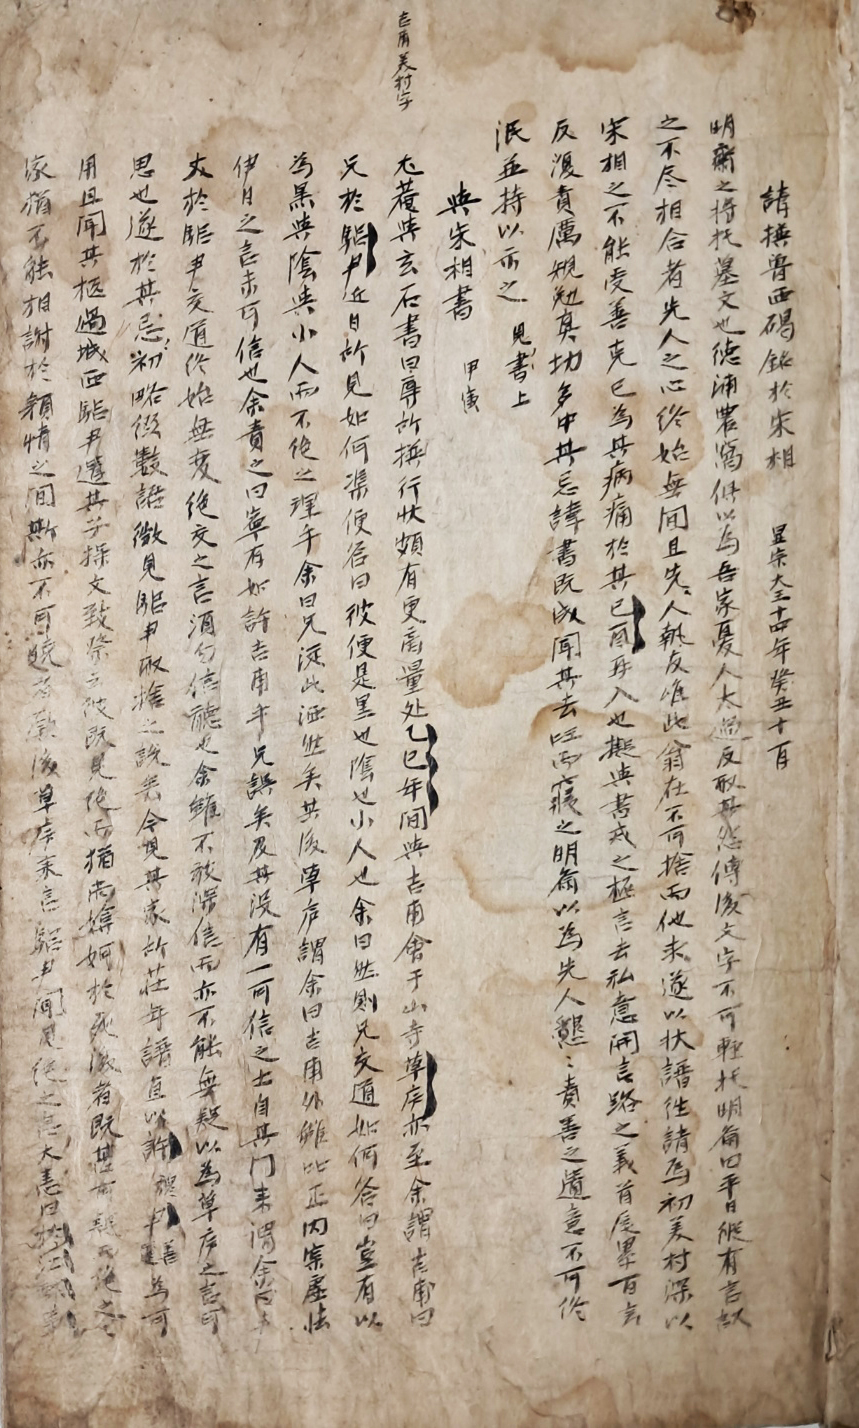 請撰魯西碣銘於宋相 顯宗大王十四年癸丑十一月
明齋之將托墓文也德浦農窩俱以為吾家憂人太過反取其怨傳後文字不可輕托明齋曰平日縱有言議
之不尽相合者先人之心終始無間且先人執友唯此翁在不可捨而他求遂以狀譜往請焉初美村深以
宋相之不能受善克己為其病痛於其己酉再入也擬與書戒之極言去私意開言路之義首尾累百言
反復責厲規勉真切多中其忌諱書既成聞其去 而寢之明齋以為先人懇懇責善之遺意不可終
泯並持以示之 見書上
與宋相書 甲寅
吉甫美村字
尤菴與玄石書曰尊所撰行狀頗有更商量処乙巳年間與吉甫會于山寺草廬亦至余謂吉甫曰
兄於驪尹近日所見如何渠便答曰彼便是黑也陰也小人也余曰然則兄交道如何答曰豈有以
為黑與陰與小人而不絶之理乎余曰兄從此洒然矣其後草廬謂余曰吉甫外雖比正內案虛怯
伊日之言未可信也余責之曰寧有如許吉甫乎兄誤矣及其沒有一可信之士自其門來謂余曰
丈於驪尹交道終始無変絶交之言須勿信聽也余雖不敢深信而亦不能無疑以為草廬之言可
思也遂於其忌初略綴數語微見驪尹取捨之說矣今見其家所狀年譜直以許穆尹鑴善為可
用且聞其柩過城西驪尹遣其子操文致祭云彼既見絶而猶尚 婀於死後者既 可 而絶之
家猶不能相謝於 情之間斯亦不可曉者 後草廬來言驪尹聞見絶之言大 曰 江都事